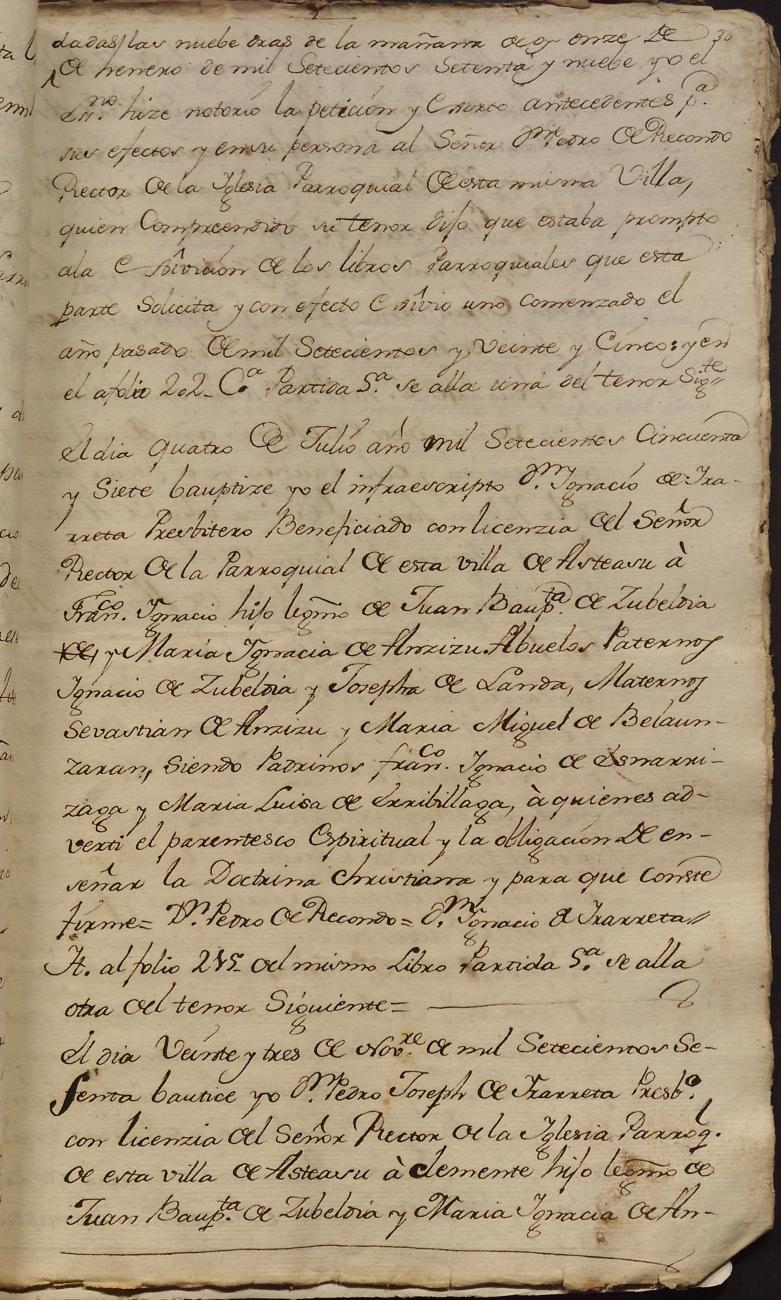 dadas las nuebe oras de la mañana de oy onze de 30
de henero de mil Setecientos Setenta y nuebe yo el
Ess.no hize notorio la petición y Auto antecedentes p.a
sus efectos y en su persona al Señor D.n Pedro de Recondo
Rector de la Iglesia Parroquial de esta misma Villa,
quien Compreendido su tenor dijo que estaba prompto
ala exsivición de los libros Parroquiales que esta
parte Solicita y con efecto exsivio uno comenzado el
año pasado de mil Setecientos y Veinte y Cinco: y en
el afolio 202. C.a Partida 5.a se alla una del tenor Sig.te
El dia quatro de Julio año mil Setecientos Cincuenta
y Siete bauptize yo el infraescripto D.n Ignacio de Ira-
rreta Presbitero Beneficiado con licenzia del Señor
Rector de la Parroquial de esta villa de Asteasu à
Fran.co Ignacio hijo legmo de Juan Baup.ta de Zubeldia
de, y Maria Ignacia de Anzizu Abuelos Paternos
Ignacio de Zubeldia y Josepha de Landa, Maternos
Sevastian de Anzizu y Maria Miguel de Belaun-
zaran, Siendo Padrinos fran.co Ignacio de Esnarri-
zaga y Maria Luisa de Erribillaga, à quienes ad-
verti el parentesco Espiritual y la obligación de en-
señar la Doctrina Christiana y para que conste
firme= D.n Pedro de Recondo= D.n Ignacio de Irarreta
It. al folio 215 del mismo Libro Partida 5.a se alla
otra del tenor Siguiente=
El dia Veinte y tres de Nov.re de mil Setecientos Se-
senta bautice yo D.n Pedro Joseph de Irarreta Presb.o
con licenzia del Señor Rector de la Iglesia Parroq.l
de esta villa de Asteasu à Clemente hijo legmo de
Juan Baup.ta de Zubeldia y Maria Ignacia de An-